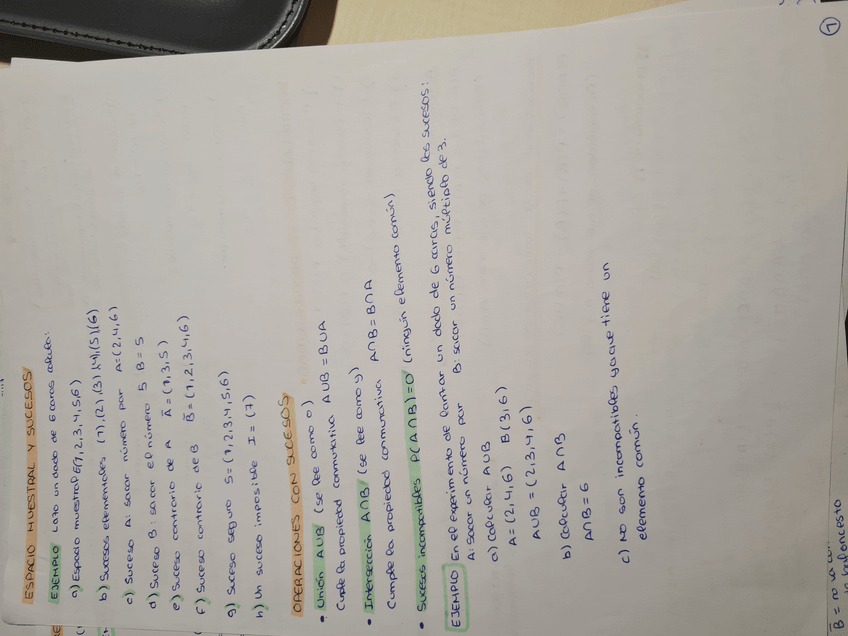 ESPACIO MUESTRAL Y SUCESOS
EJEMPLO Lazo un dado de 6 caras calculo:
a) Espacio muestral E(1,2,3,4,5,6)
b) Sucesos elementales (1),(2),(3),(4),(5),(6)
c) Suceso A: sacar número par A=(2,4,6)
d) Suceso B: sacar el número 5 B=5
e) Suceso contrario de A Ā=(1,3,5)
f) Suceso contrario de B B̄=(1,2,3,4,6)
g) Suceso seguro S=(1,2,3,4,5,6)
h) Un suceso imposible I=(7)
OPERACIONES CON SUCESOS
• Unión AUB (se lee como o)
Cuple la propiedad conmutativa AUB=BUA
• Intersección A∩B (se lee como y)
Cumple la propiedad conmutativa A∩B=B∩A
• Sucesos incompatibles P(A∩B)=0 (ningún elemento común)
EJEMPLO En el experimento de lanzar un dado de 6 caras, siendo los sucesos:
A: Sacar un número par B: sacar un número múltiplo de 3.
a) Calcular AUB
A=(2,4,6) B(3,6)
AUB=(2,3,4,6)
b) Calcular A∩B
A∩B=6
c) No son incompatibles ya que tiene un
elemento común.
1
B̄ = no